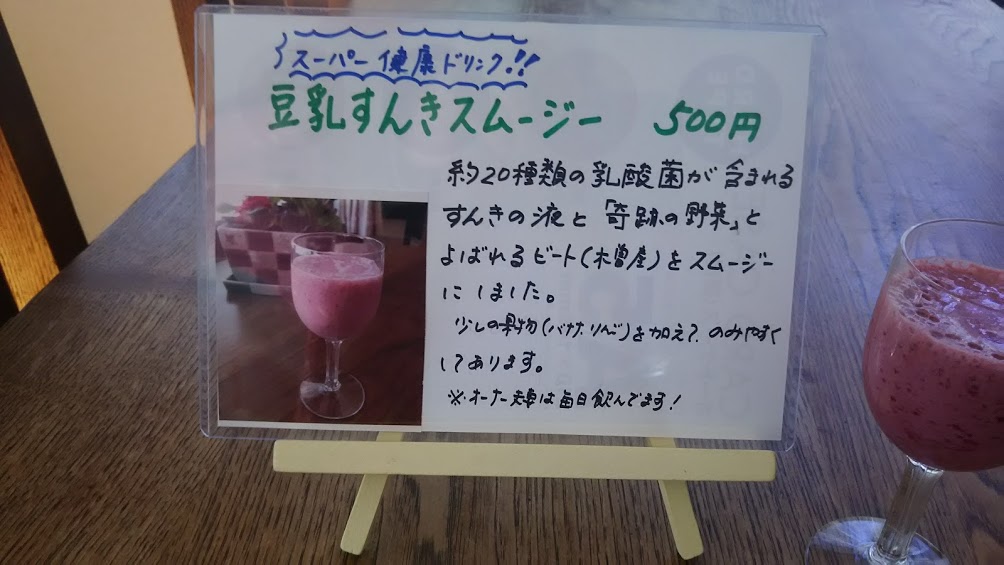 スーパー健康ドリンク!!
豆乳すんきスムージー 500円
約20種類の乳酸菌が含まれる
すんきの液と「奇跡の野菜」と
よばれるビート(木曽産)をスムージー
にしました。
少しの果物(バナナ、りんご)を加えて、のみやすく
してあります。
※オーナー夫妻は毎日飲んでます!